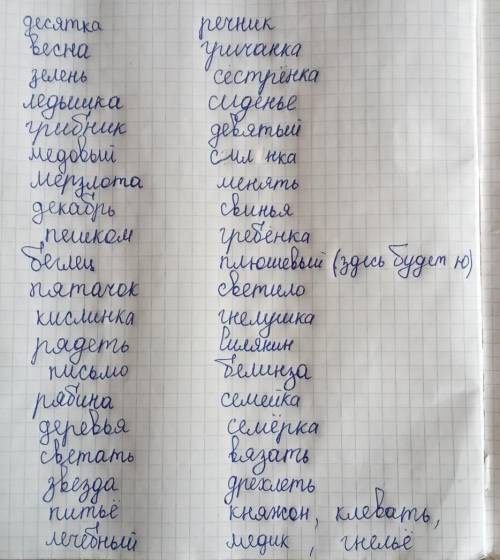 десятка
весна
зелень
ледышка
грибник
медовый
мерзлота
декабрь
пешком
беглец
пятачок
кислинка
рядеть
письмо
рябина
деревья
светать
звезда
питьё
лечебный
речник
сестрёнка
сиденье
девятый
менять
свинья
гребёнка
плюшевый (здесь будет ю)
светило
гнелушка
белинза
семейка
семёрка
вязать
дрехлеть
княжон, клевать,
медик, гнельё